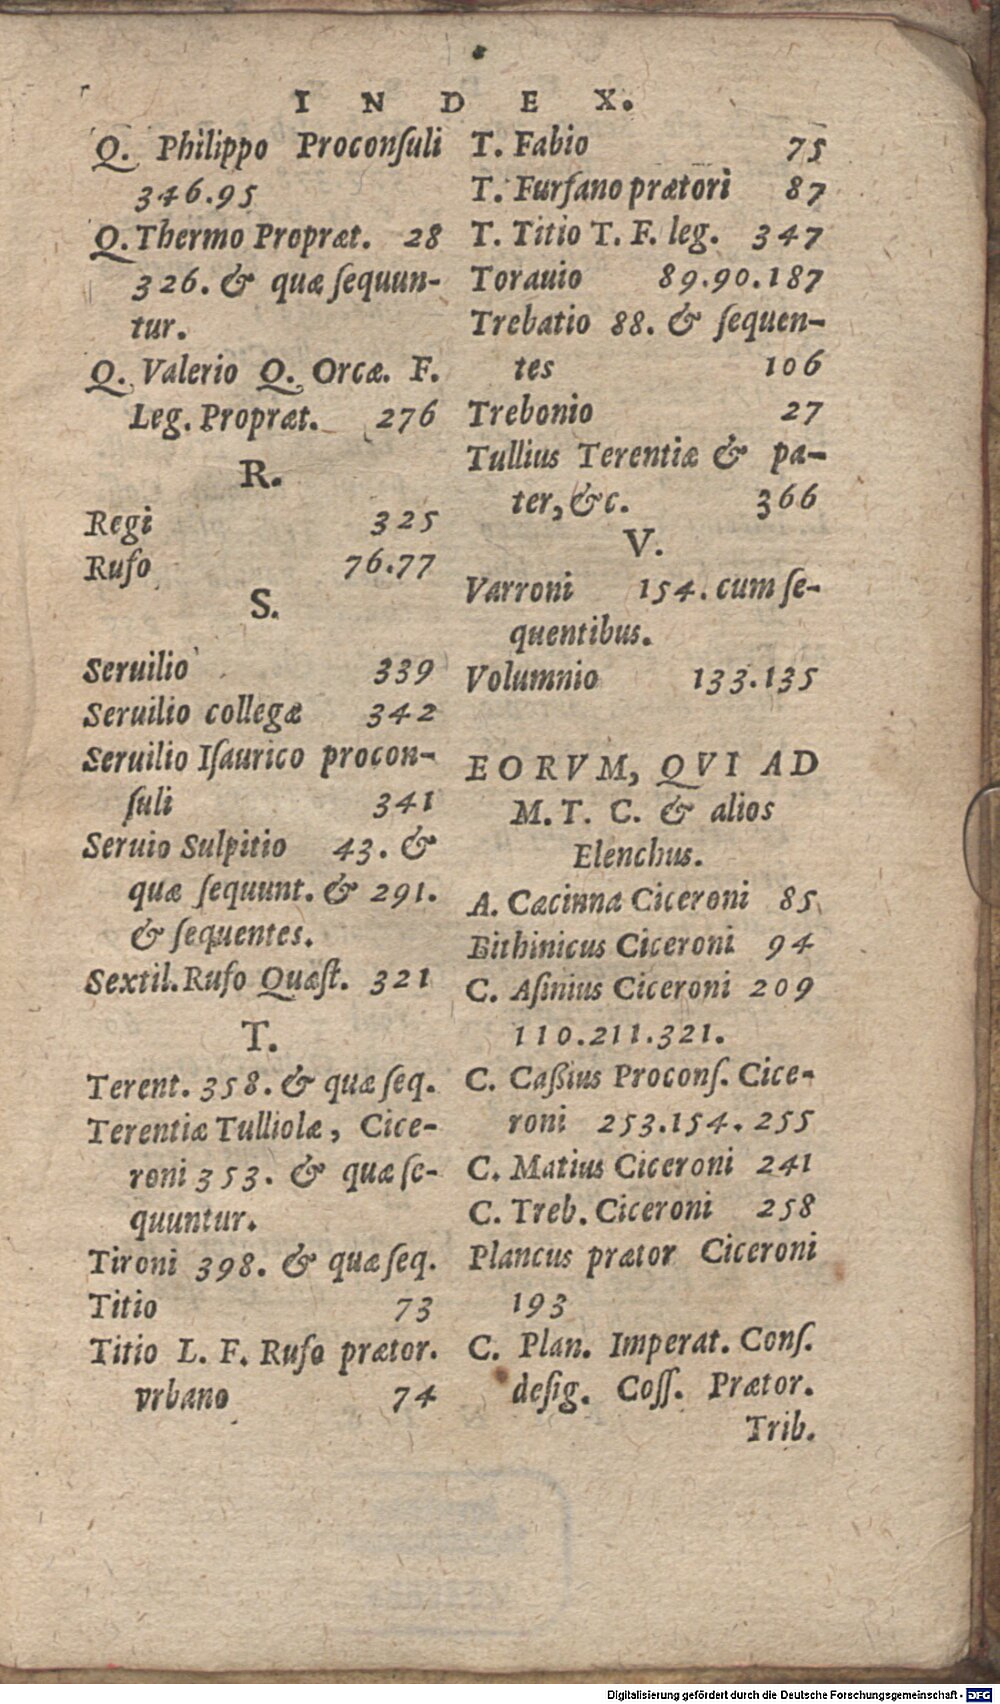 INDEX.
Q. Philippo Proconſuli
346.95
Q. Thermo Propræt. 28
326. & quæ ſequun-
tur.
Q. Valerio Q. Orcæ. F.
Leg. Propræt. 276
R.
Regi 325
Rufo 76.77
S.
Seruilio 339
Seruilio collegæ 342
Seruilio Iſaurico procon-
ſuli 341
Seruio Sulpitio 43. &
quæ ſequunt. & 291.
& ſequentes.
Sextil. Rufo Quæſt. 321
T.
Terent. 358. & quæ ſeq.
Terentiæ Tulliolæ, Cice-
roni 353. & quæ ſe-
quuntur.
Tironi 398. & quæ ſeq.
Titio 73
Titio L. F. Rufo prætor.
vrbano 74
T. Fabio 75
T. Furfano prætori 87
T. Titio T. F. leg. 347
Torauio 89.90.187
Trebatio 88. & ſequen-
tes 106
Trebonio 27
Tullius Terentiæ & pa-
ter, &c. 366
V.
Varroni 154. cum ſe-
quentibus.
Volumnio 133.135
EORVM, QVI AD
M. T. C. & alios
Elenchus.
A. Cæcinna Ciceroni 85
Bithinicus Ciceroni 94
C. Aſinius Ciceroni 209
110.211.321.
C. Caßius Proconſ. Cice-
roni 253.154.255
C. Matius Ciceroni 241
C. Treb. Ciceroni 258
Plancus prætor Ciceroni
193
C. Plan. Imperat. Conſ.
deſig. Coſſ. Prætor.
Trib.
Digitalisierung gefördert durch die Deutsche Forschungsgemeinschaft - DFG